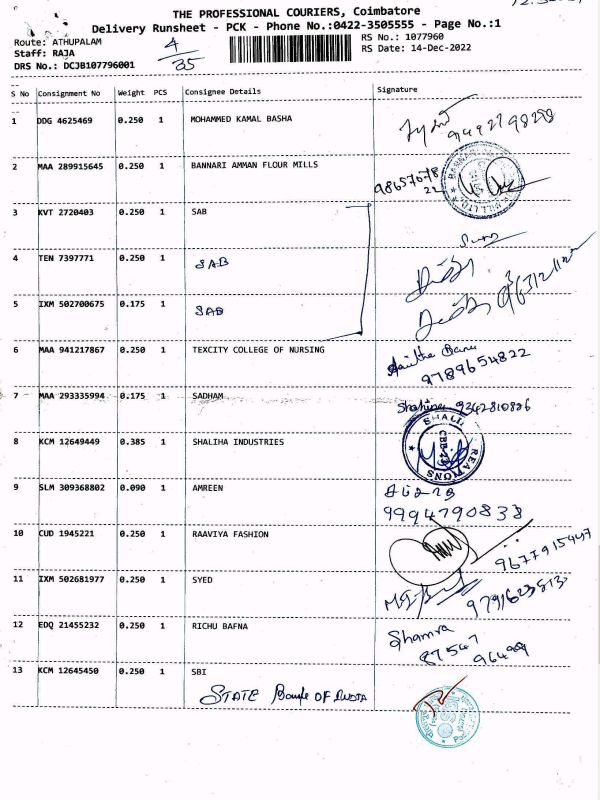 THE PROFESSIONAL COURIERS, Coimbatore
Delivery Runsheet - PCK - Phone No.:0422-3505555 - Page No.:1
Route: ATHUPALAM 4 RS No.: 1077960
Staff: RAJA 35 RS Date: 14-Dec-2022
DRS No.: DCJB107796001
S No Consignment No Weight PCS Consignee Details Signature
1 DDG 4625469 0.250 1 MOHAMMED KAMAL BASHA
2 MAA 289915645 0.250 1 BANNARI AMMAN FLOUR MILLS 98657078
22
3 KVT 2720403 0.250 1 SAB
4 TEN 7397771 0.250 1 SAB
5 IXM 502700675 0.175 1 SAB
6 MAA 941217867 0.250 1 TEXCITY COLLEGE OF NURSING
9789654822
7 MAA 293335994 0.175 1 SADHAM 9342810886
8 KCM 12649449 0.385 1 SHALIHA INDUSTRIES
9 SLM 309368802 0.090 1 AMREEN
9994790838
10 CUD 1945221 0.250 1 RAAVIYA FASHION
9677915447
11 IXM 502681977 0.250 1 SYED
9791623813
12 EDQ 21455232 0.250 1 RICHU BAFNA
87547
13 KCM 12645450 0.250 1 SBI
STATE Bank OF India